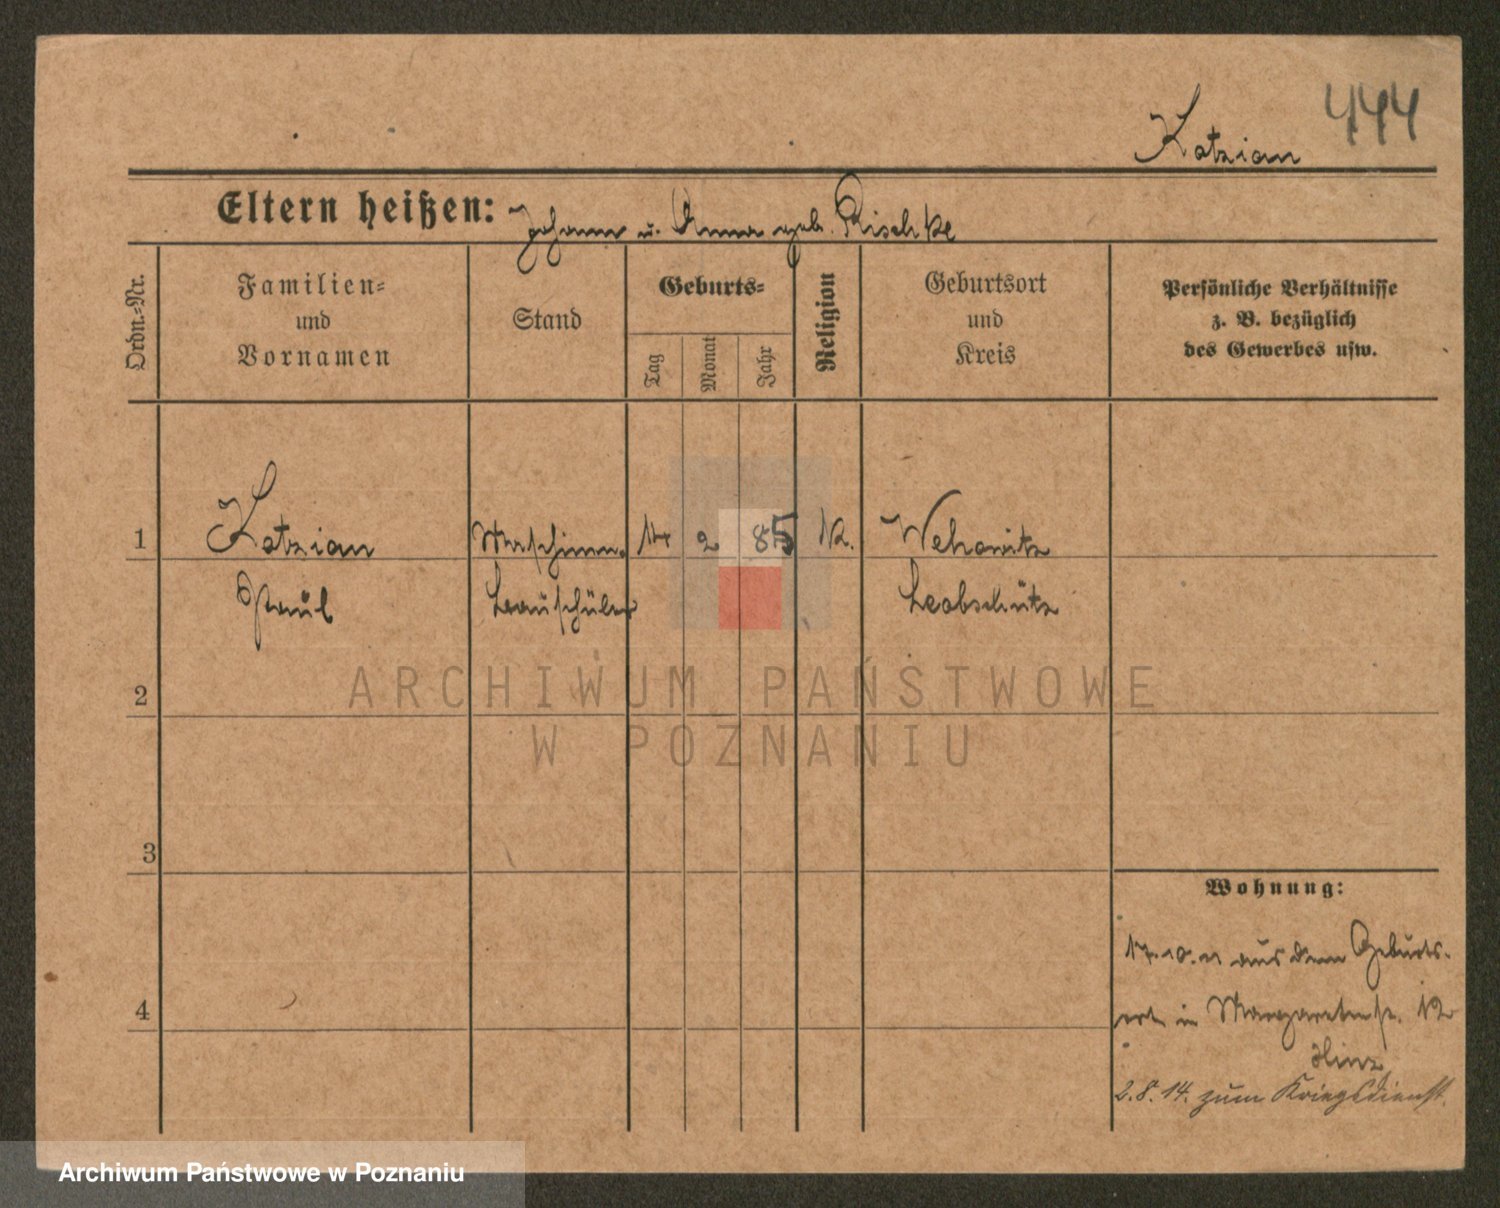 444
Katzian
Eltern heißen: Johann u. Anna geb. Rischke
Ordn.-Nr.
Familien-
und
Vornamen
Stand
Geburts-
Tag
Monat
Jahr
Religion
Geburtsort
und
Kreis
Persönliche Verhältnisse
z. B. bezüglich
des Gewerbes usw.
1 Katzian Maschinen- 14 2 85 K. Wehowitz
Paul bauschüler Leobschütz
2
3
4
Wohnung:
17.10.11 aus dem Geburts-
ort in Margaretenstr. 12
Hinz
2.8.14. zum Kriegsdienst.
ARCHIWUM PAŃSTWOWE
W POZNANIU
Archiwum Państwowe w Poznaniu